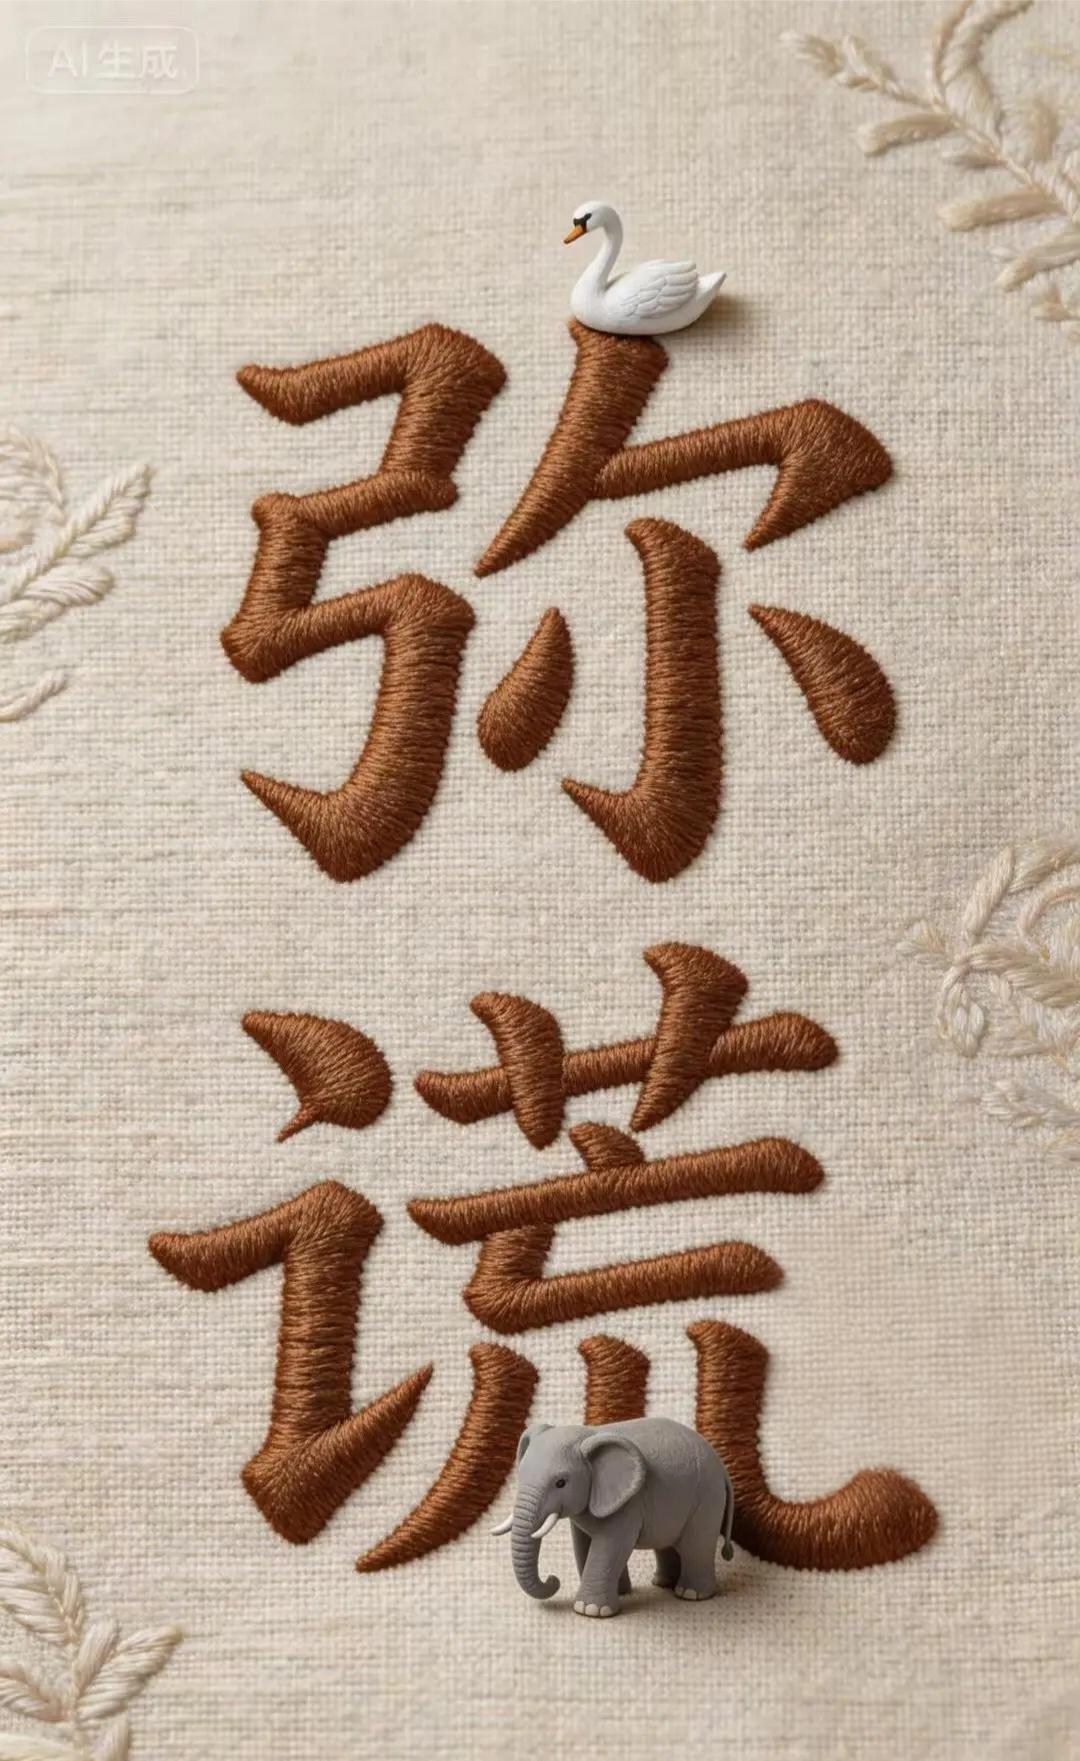 AI生成
弥
谎